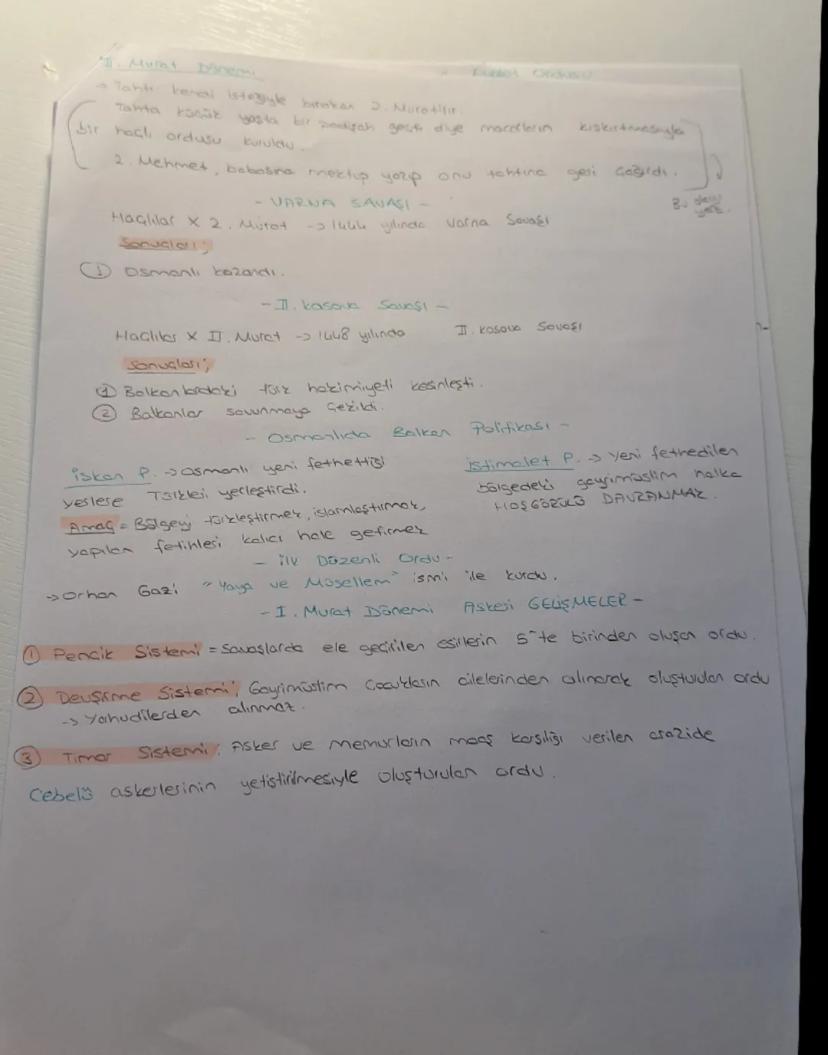 II. Murat Dönemi
→ Tahtı kendi isteğiyle bırakan 2. Murattır.
Tahta küçük yaşta bir padişah geçti diye macarların kışkırtmasıyla
bir haçlı ordusu kuruldu.
2. Mehmet, babasına mektup yazıp onu tahtına geri çağırdı.
- VARNA SAVAŞI -
Haçlılar X 2. Murat → 1444 yılında Varna Savaşı
Sonuçları;
① Osmanlı kazandı.
- II. Kosova Savaşı -
Haçlılar X II. Murat → 1448 yılında II. Kosova Savaşı
Sonuçları;
① Balkanlardaki türk hakimiyeti kesinleşti.
② Balkanlar savunmaya çekildi.
- Osmanlıda Balkan Politikası -
İskan P. → Osmanlı yeni fethettiği
yerlere Türkleri yerleştirdi.
Amaç = Bölgeyi türkleştirmek, islamlaştırmak,
yapılan fetihleri kalıcı hale getirmek
istimalet P. → yeni fethedilen
bölgedeki gayrimüslim halka
HOŞGÖRÜLÜ DAVRANMAK.
- İlk Düzenli Ordu -
→ Orhan Gazi "Yaya ve Müsellem" ismi ile kurdu.
- I. Murat Dönemi Askeri GELİŞMELER -
① Pencik Sistemi = Savaşlarda ele geçirilen esirlerin 5'te birinden oluşan ordu.
② Devşirme Sistemi; Gayrimüslim Çocukların ailelerinden alınarak oluşturulan ordu
→ Yahudilerden alınmaz.
③ Tımar Sistemi: Asker ve memurların maaş karşılığı verilen arazide
Cebelü askerlerinin yetiştirilmesiyle oluşturulan ordu.